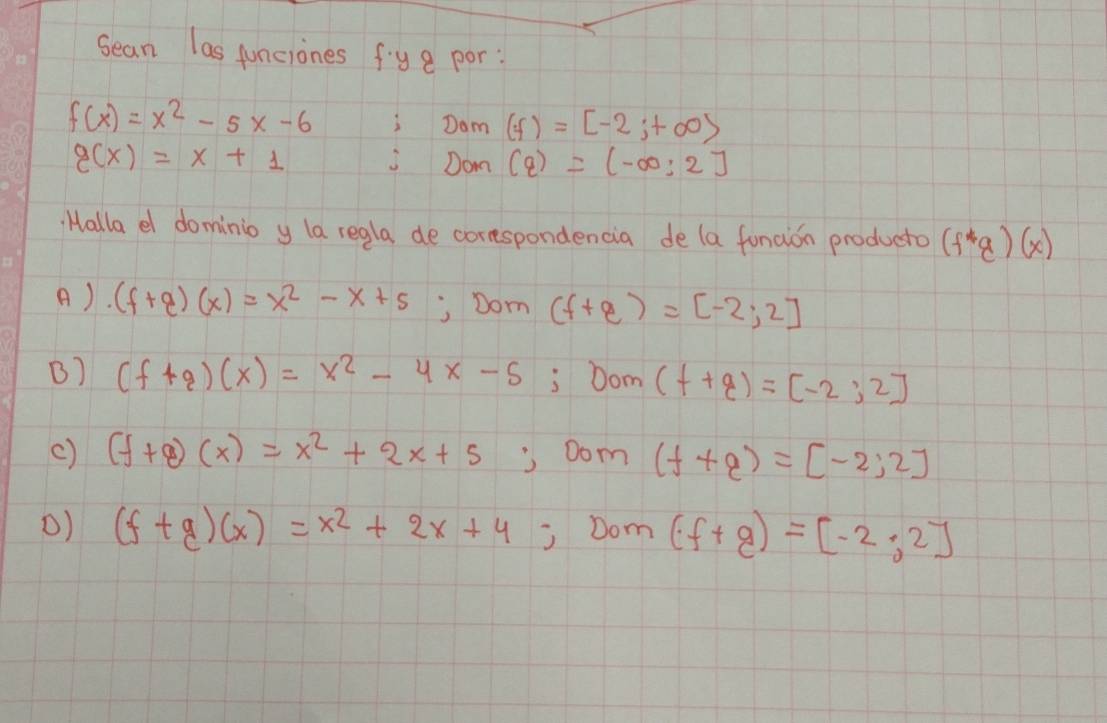 Sean las funciones f y g por:
f(x) = x² - 5x - 6 ; Dom (f) = [-2 ; +∞>
g(x) = x + 1 ; Dom (g) = (-∞ ; 2]
Halla el dominio y la regla de correspondencia de la función producto (f*g)(x)
A) (f+g)(x) = x² - x + 5 ; Dom (f+g) = [-2 ; 2]
B) (f+g)(x) = x² - 4x - 5 ; Dom (f+g) = [-2 ; 2]
C) (f+g)(x) = x² + 2x + 5 ; Dom (f+g) = [-2 ; 2]
D) (f+g)(x) = x² + 2x + 4 ; Dom (f+g) = [-2 ; 2]